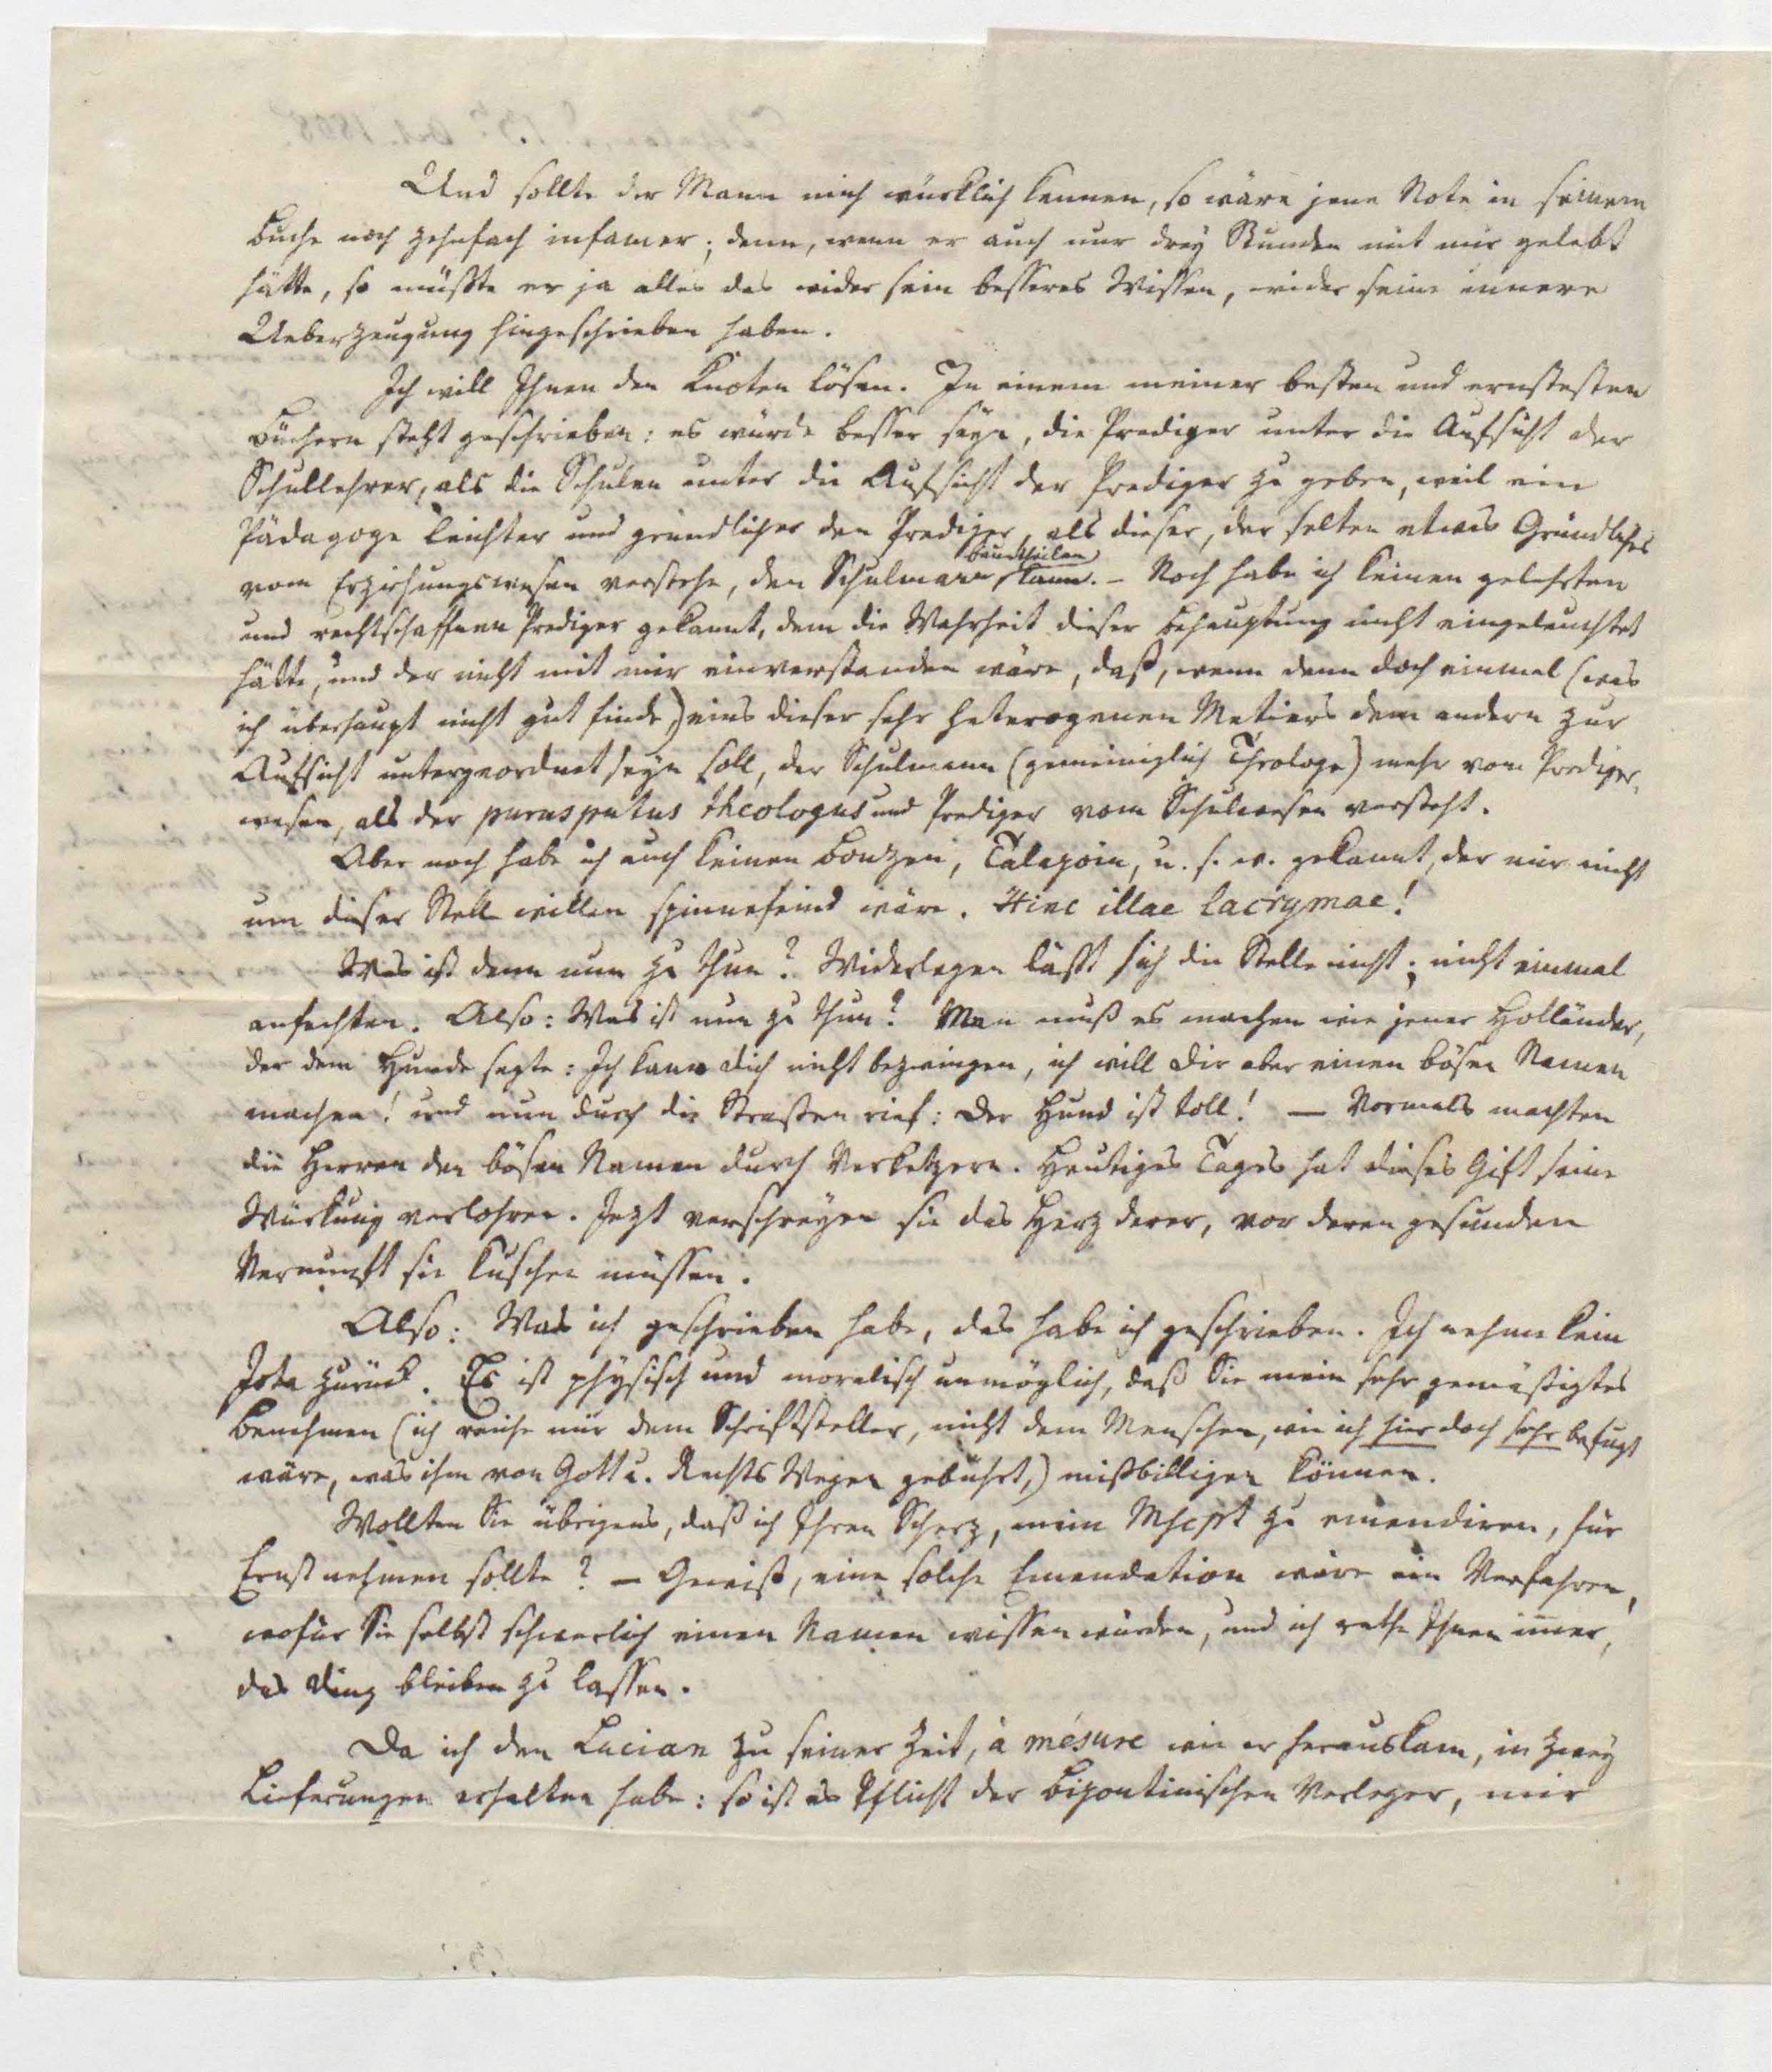 Und sollte der Mann mich würklich kennen, so wäre jene Note in seinem
Buche noch zehnfach infamer; denn, wenn er auch nur drey Stunden mit mir gelebt
hätte, so müßte er ja alles das wider sein besseres Wissen, wider seine innere
Ueberzeugung hingeschrieben haben.
Ich will Ihnen den Knoten lösen. In einem meiner besten und ernstesten
Büchern steht geschrieben: es würde besser seyn, die Prediger unter die Aufsicht der
Schullehrer, als die Schulen unter die Aufsicht der Prediger zu geben, weil ein
Pädagoge leichter und gründlicher den Prediger, als dieser, der selten etwas Gründliches
vom Erziehungswesen verstehe, den Schulmann beurtheilen kann. – Noch habe ich keinen gelehrten
und rechtschaffnen Prediger gekannt, dem die Wahrheit dieser Behauptung nicht eingeleuchtet
hätte, und der nicht mit mir einverstanden wäre, daß, wenn denn doch einmal (was
ich überhaupt nicht gut finde,) eins dieser sehr heterogenen Metiers dem andern zur
Aufsicht untergeordnet seyn soll, der Schulmann (gemeiniglich Theologe) mehr vom Prediger-
wesen, als der purus putus theologus und Prediger vom Schulwesen versteht.
Aber noch habe ich auch keinen Bonzen, Talapoin, u. s. w. gekannt, der mir nicht
um dieser Stelle willen spinnefeind wäre. Hinc illae lacrymae!
Was ist denn nun zu thun? Widerlegen läßt sich die Stelle nicht; nicht einmal
anfechten. Also: Was ist nun zu thun? Man muß es machen wie jener Holländer,
der dem Hunde sagte: Ich kann dich nicht bezwingen, ich will dir aber einen bösen Namen
machen! und nun durch die Straßen rief: der Hund ist toll! — Vormals machten
die Herren den bösen Namen durch Verketzern. Heutiges Tages hat dieses Gift seine
Würkung verlohren. Jezt verschreyen sie das Herz derer, vor deren gesunden
Vernunft sie kuschen müssen.
Also: Was ich geschrieben habe, das habe ich geschrieben. Ich nehme kein
Jota zurück. Es ist physisch und moralisch unmöglich, daß Sie mein sehr gemäßigtes
Benehmen (ich reiche nur dem Schriftsteller, nicht dem Menschen, wie ich hier doch sehr befugt
wäre, was ihm von Gott u. Rechts Wegen gebührt,) mißbilligen können.
Wollten Sie übrigens, daß ich Ihren Scherz, mein Mscpt zu emendiren, für
Ernst nehmen sollte? — Gewiß, eine solche Emendation wäre ein Verfahren,
wofür Sie selbst schwerlich einen Namen wissen würden, und ich rathe Ihnen im̄er,
das Ding bleiben zu lassen.
Da ich den Lucian zu seiner Zeit, à mésure wie er herauskam, in zwey
Lieferungen erhalten habe: so ist es Pflicht der Bipontinischen Verleger, mir